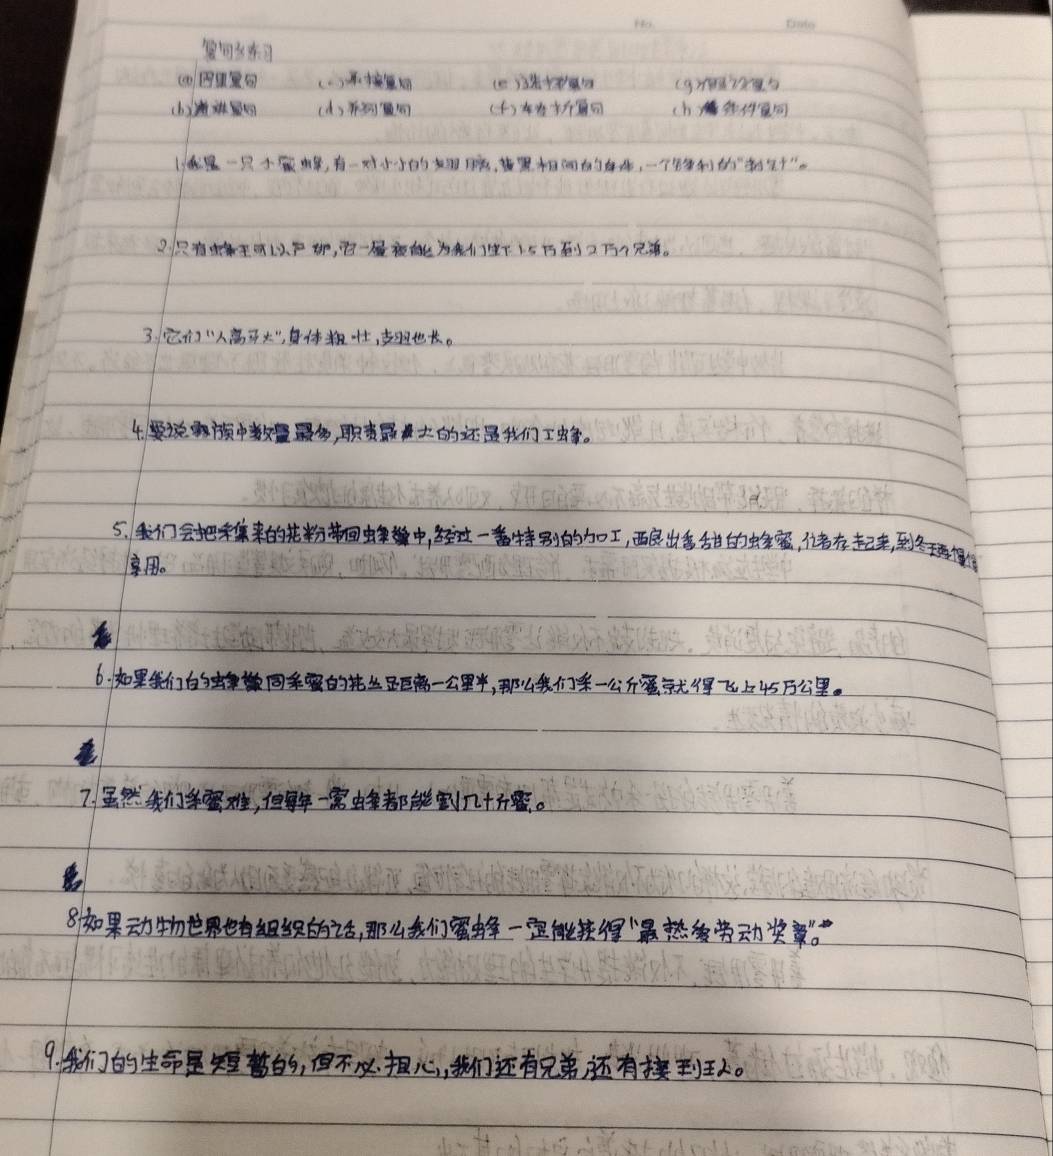 No. Date
复句练习
(a) 因果复句 (c) 承接复句 (e) 选择复句 (g) 假设复句
(b) 递进复句 (d) 并列复句 (f) 转折复句 (h) 条件复句
1. 我是一只小蜜蜂,有一对小小的翅膀,黄黑相间的身体,一个锋利的"刺针"。
2. 只有蜂王可以产卵,它一昼夜能为我们生下1.5万到2万个兄弟。
3. 它们"人高马大",身体粗壮,翅也长。
4. 要说家族中数量最多,职责最大的还是我们工蜂。
5. 我们会把采集来的花粉带回蜂巢中,经过一番特别的加工,酿出香甜的蜂蜜,储存起来,到冬天再慢慢
享用。
6. 如果我们的蜂巢同采蜜的花丛距离一公里半,那么我们采一公斤蜜就得飞上45万公里。
7. 虽然我们采蜜难,但每年一窝蜂都能割几十斤蜜。
8. 如果动物世界也有组织的话,那么我们蜜蜂一定能获得"最热爱劳动奖章"。
9. 我们的生命是短暂的,但不必担心,我们还有兄弟,还有接班人。